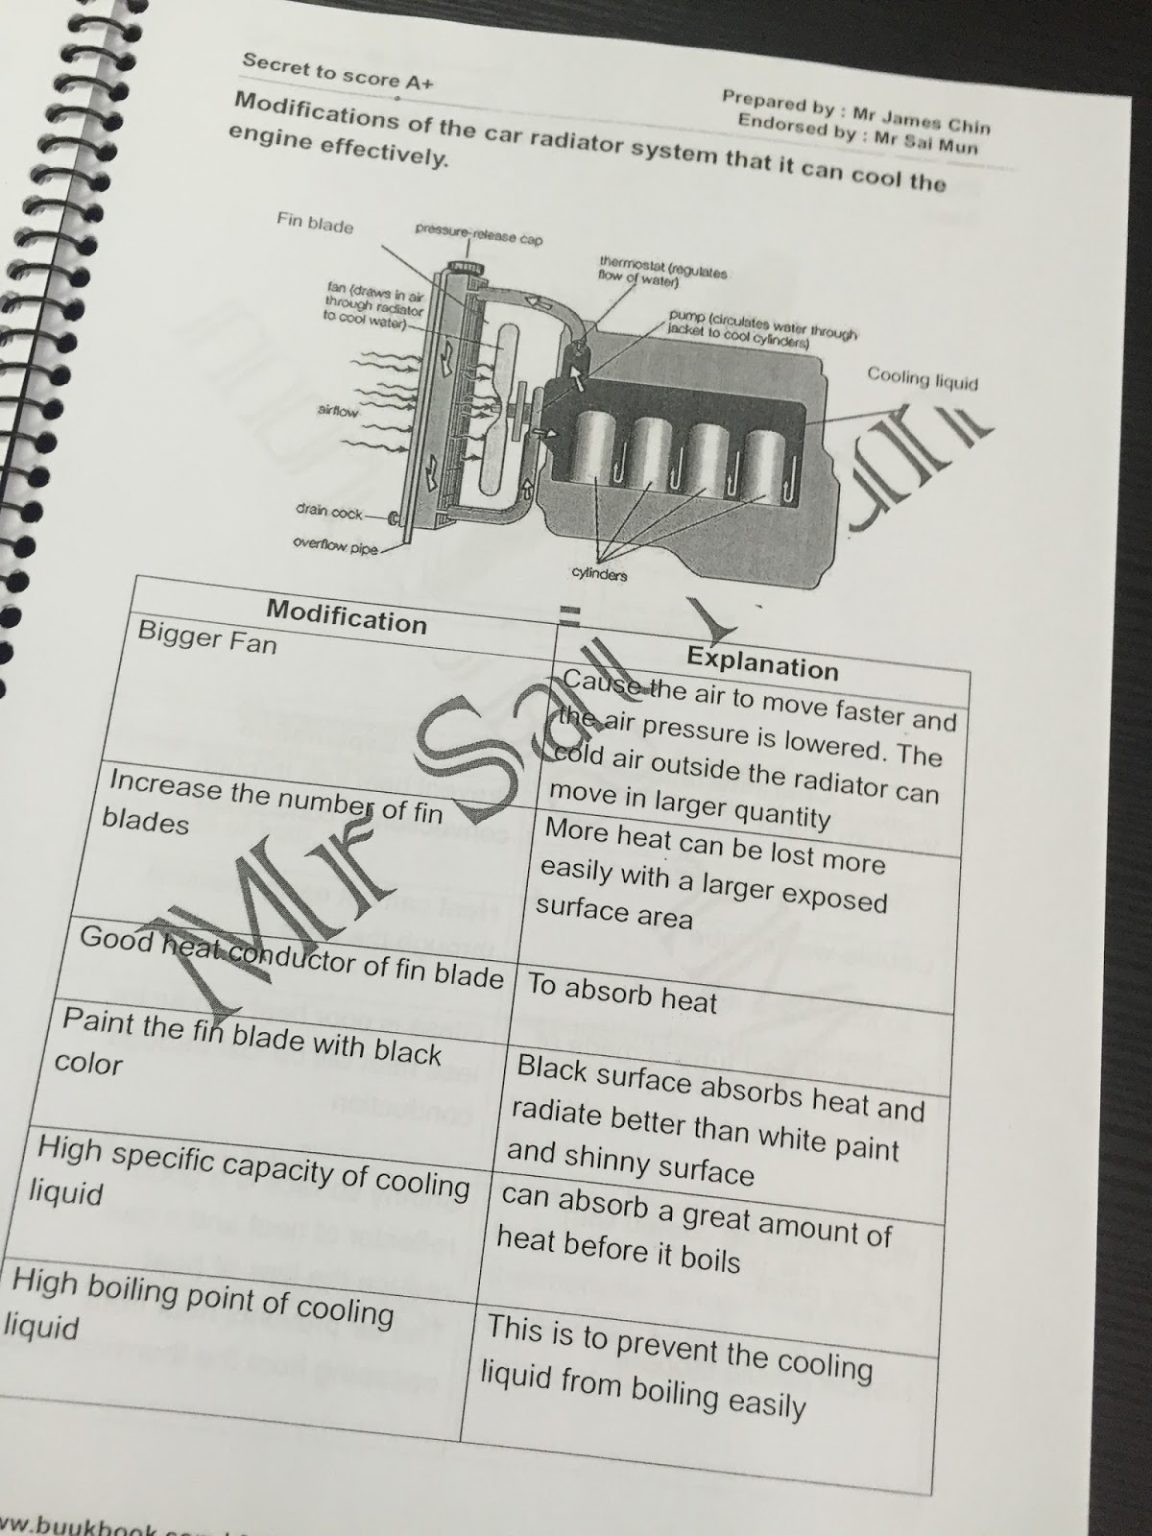 Secret to score A+
Prepared by : Mr James Chin
Endorsed by : Mr Sai Mun
Modifications of the car radiator system that it can cool the
engine effectively.
Fin blade
pressure-release cap
thermostat (regulates
flow of water)
fan (draws in air
through radiator
to cool water)
pump (circulates water through
jacket to cool cylinders)
Cooling liquid
airflow
drain cock
overflow pipe
cylinders
Modification
Explanation
Bigger Fan
Cause the air to move faster and
the air pressure is lowered. The
cold air outside the radiator can
move in larger quantity
Increase the number of fin
blades
More heat can be lost more
easily with a larger exposed
surface area
Good heat conductor of fin blade
To absorb heat
Paint the fin blade with black
color
Black surface absorbs heat and
radiate better than white paint
and shinny surface
High specific capacity of cooling
liquid
can absorb a great amount of
heat before it boils
High boiling point of cooling
liquid
This is to prevent the cooling
liquid from boiling easily
Mr